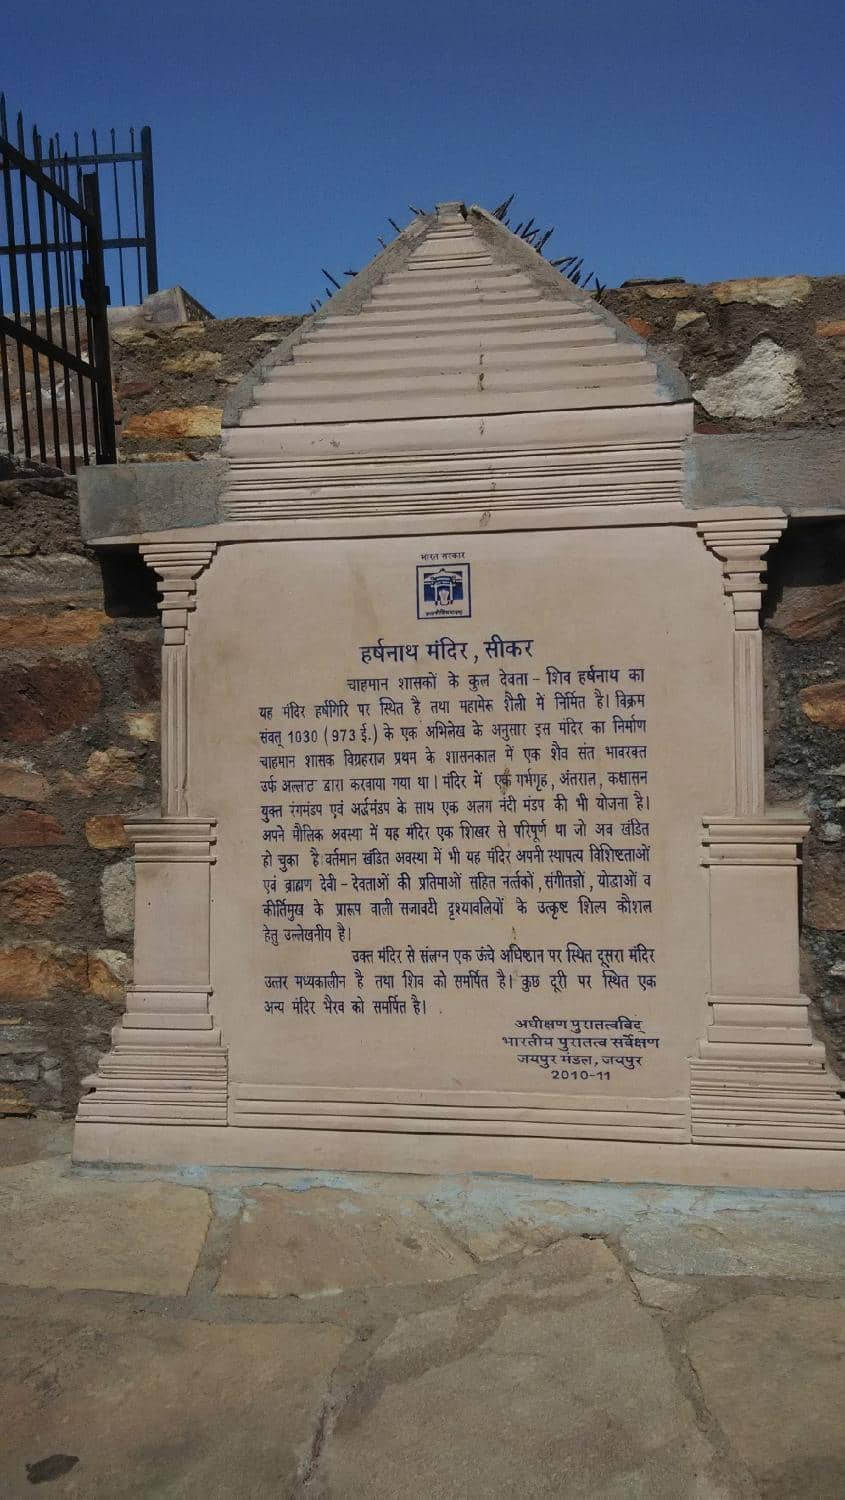 भारत सरकार
हर्षनाथ मंदिर, सीकर
चाहमान शासकों के कुल देवता - शिव हर्षनाथ का
यह मंदिर हर्षगिरि पर स्थित है तथा महामेरू शैली में निर्मित है। विक्रम
संवत् 1030 (973 ई.) के एक अभिलेख के अनुसार इस मंदिर का निर्माण
चाहमान शासक विग्रहराज प्रथम के शासनकाल में एक शैव संत भावरक्त
उर्फ अल्लट द्वारा करवाया गया था। मंदिर में एक गर्भगृह, अंतराल, कक्षासन
युक्त रंगमंडप एवं अर्द्धमंडप के साथ एक अलग नंदी मंडप की भी योजना है।
अपने मौलिक अवस्था में यह मंदिर एक शिखर से परिपूर्ण था जो अब खंडित
हो चुका है। वर्तमान खंडित अवस्था में भी यह मंदिर अपनी स्थापत्य विशिष्टताओं
एवं ब्राह्मण देवी - देवताओं की प्रतिमाओं सहित नर्त्तकों, संगीतज्ञों, योद्धाओं व
कीर्तिमुख के प्रारूप वाली सजावटी दृश्यावलियों के उत्कृष्ट शिल्प कौशल
हेतु उल्लेखनीय है।
उक्त मंदिर से संलग्न एक ऊंचे अधिष्ठान पर स्थित दूसरा मंदिर
उत्तर मध्यकालीन है तथा शिव को समर्पित है। कुछ दूरी पर स्थित एक
अन्य मंदिर भैरव को समर्पित है।
अधीक्षण पुरातत्वविद्
भारतीय पुरातत्व सर्वेक्षण
जयपुर मंडल, जयपुर
2010-11